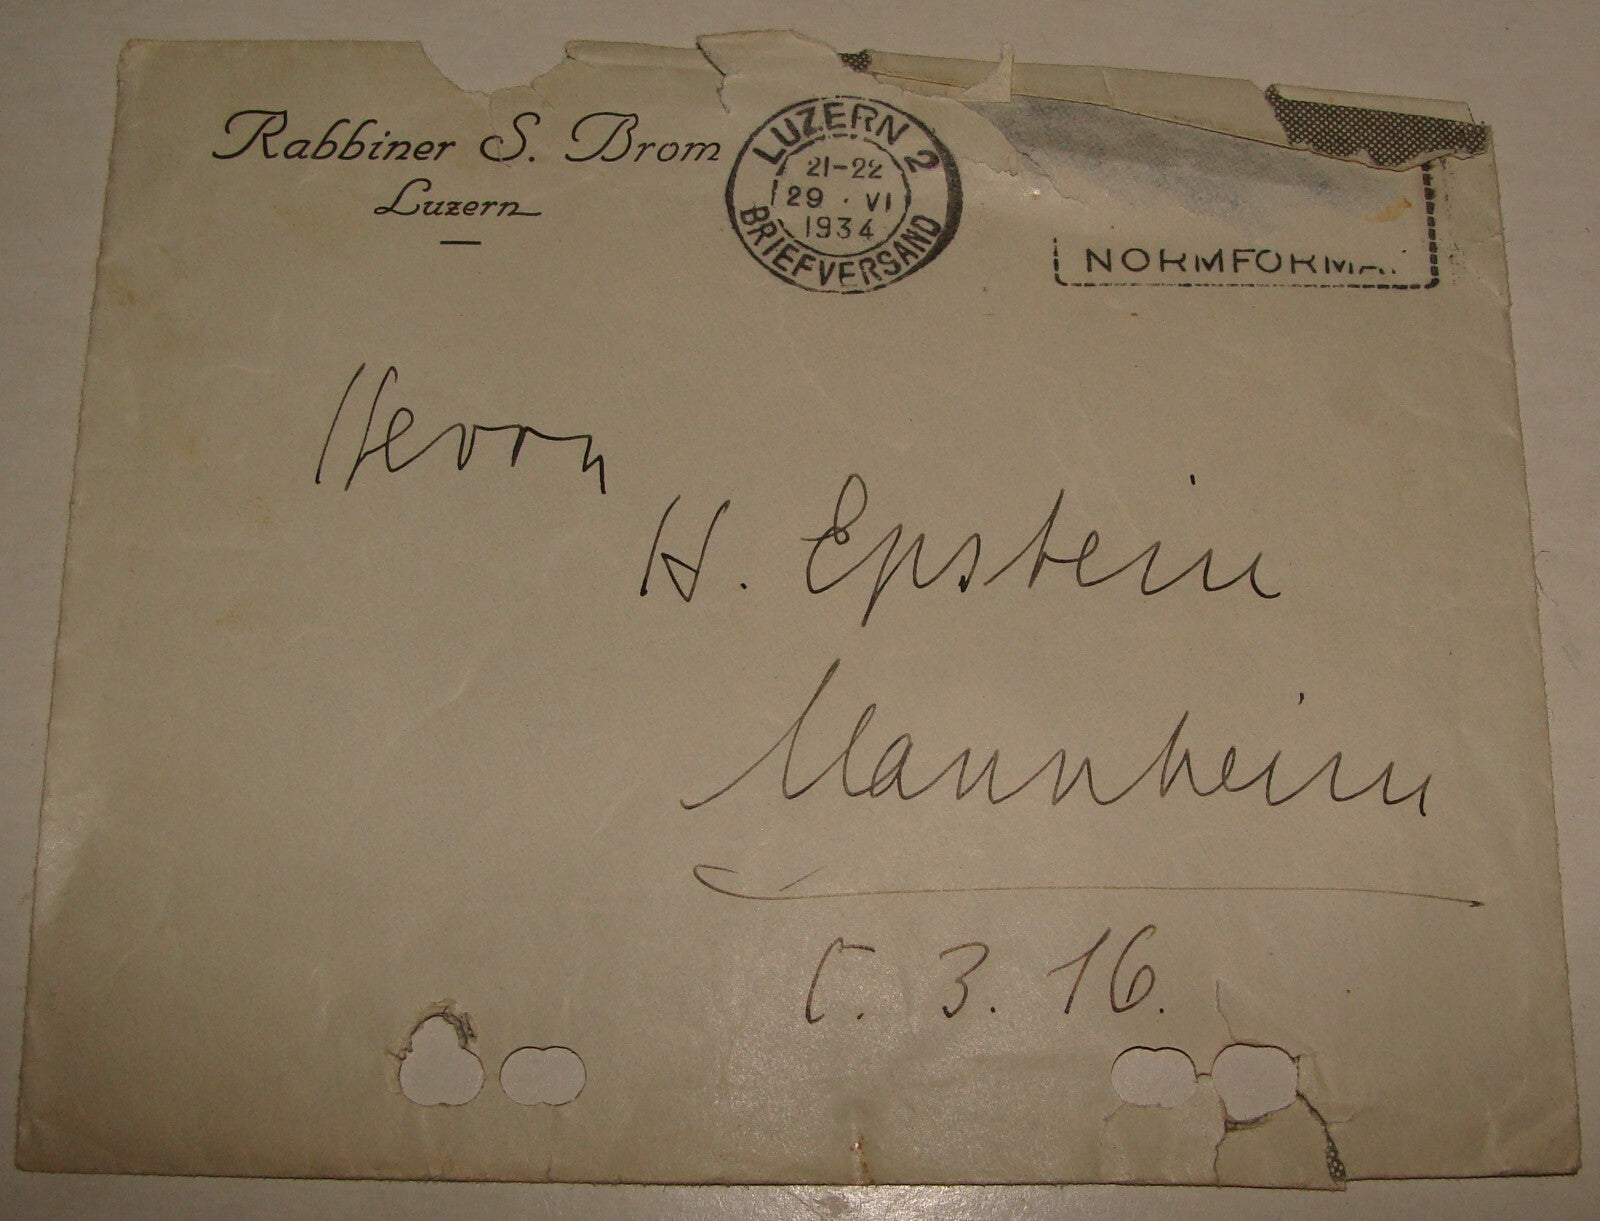 Rabbiner S. Brom
Luzern
LUZERN 2
21-22
29 · VI
1934
BRIEFVERSAND
NORMFORMAT
Herrn
H. Epstein
Mannheim
C. 3. 16.